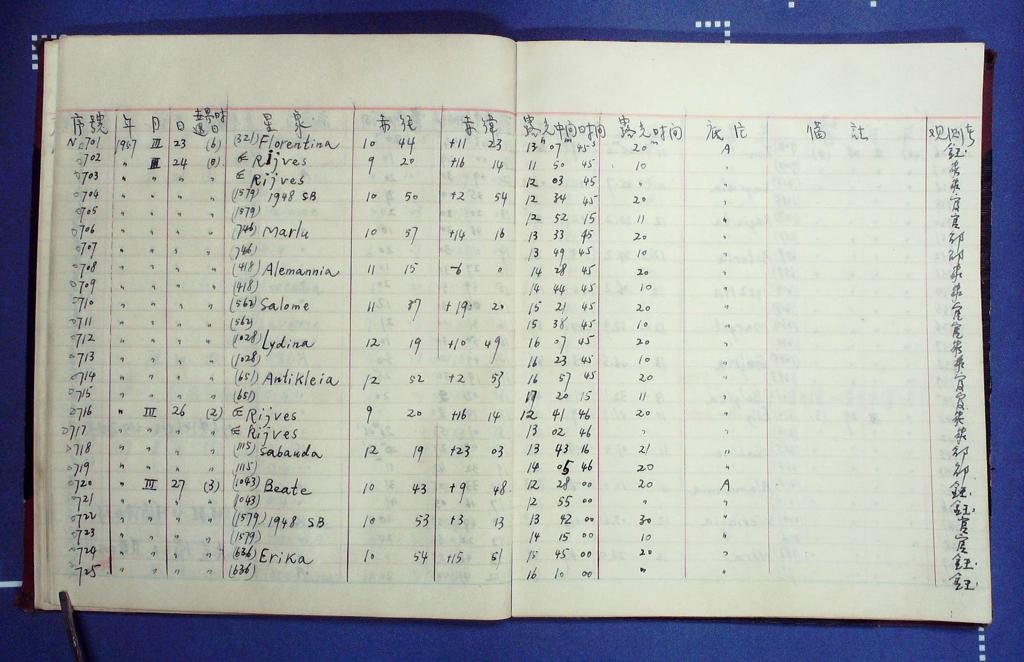 序號 年 月 日 世界時 週日 星象 赤徑 赤緯 露光中间时间 露光时间 底片 備註 观测者
N 0701 1967 III 23 (6) (321) Florentina 10 44 +11 23 13h 07m 45s 20m A
0702 " III 24 (0) € Rijves 9 20 +16 14 11 50 45 10 "
0703 " " " " € Rijves 12 03 45 " "
0704 " " " " (1579) 1948 SB 10 50 +2 54 12 34 45 20 "
0705 " " " " (1579) 12 52 15 11 "
0706 " " " " (746) Marlu 10 57 +14 16 13 33 45 20 "
0707 " " " " (746) 13 49 45 10 "
0708 " " " " (418) Alemannia 11 15 -6 0 14 28 45 20 "
0709 " " " " (418) 14 44 45 10 "
0710 " " " " (562) Salome 11 37 +19 20 15 21 45 20 "
0711 " " " " (562) 15 38 45 10 "
0712 " " " " (1028) Lydina 12 19 +10 49 16 07 45 20 "
0713 " " " " (1028) 16 23 45 10 "
0714 " " " " (651) Antikleia 12 52 +2 53 16 57 45 20 "
0715 " " " " (651) 17 20 15 11 "
0716 " III 26 (2) € Rijves 9 20 +16 14 12 41 46 20 "
0717 " " " " € Rijves 13 02 46 " "
0718 " " " " (1115) Sabauda 12 19 +23 03 13 43 16 21 "
0719 " " " " (1115) 14 05 46 20 "
0720 " III 27 (3) (1043) Beate 10 43 +9 48 12 28 00 20 A
0721 " " " " (1043) 12 55 00 " "
0722 " " " " (1579) 1948 SB 10 53 +3 13 13 42 00 30 "
0723 " " " " (1579) 14 15 00 10 "
0724 " " " " (636) Erika 10 54 +15 51 15 45 00 20 "
0725 " " " " (636) 16 10 00 " "